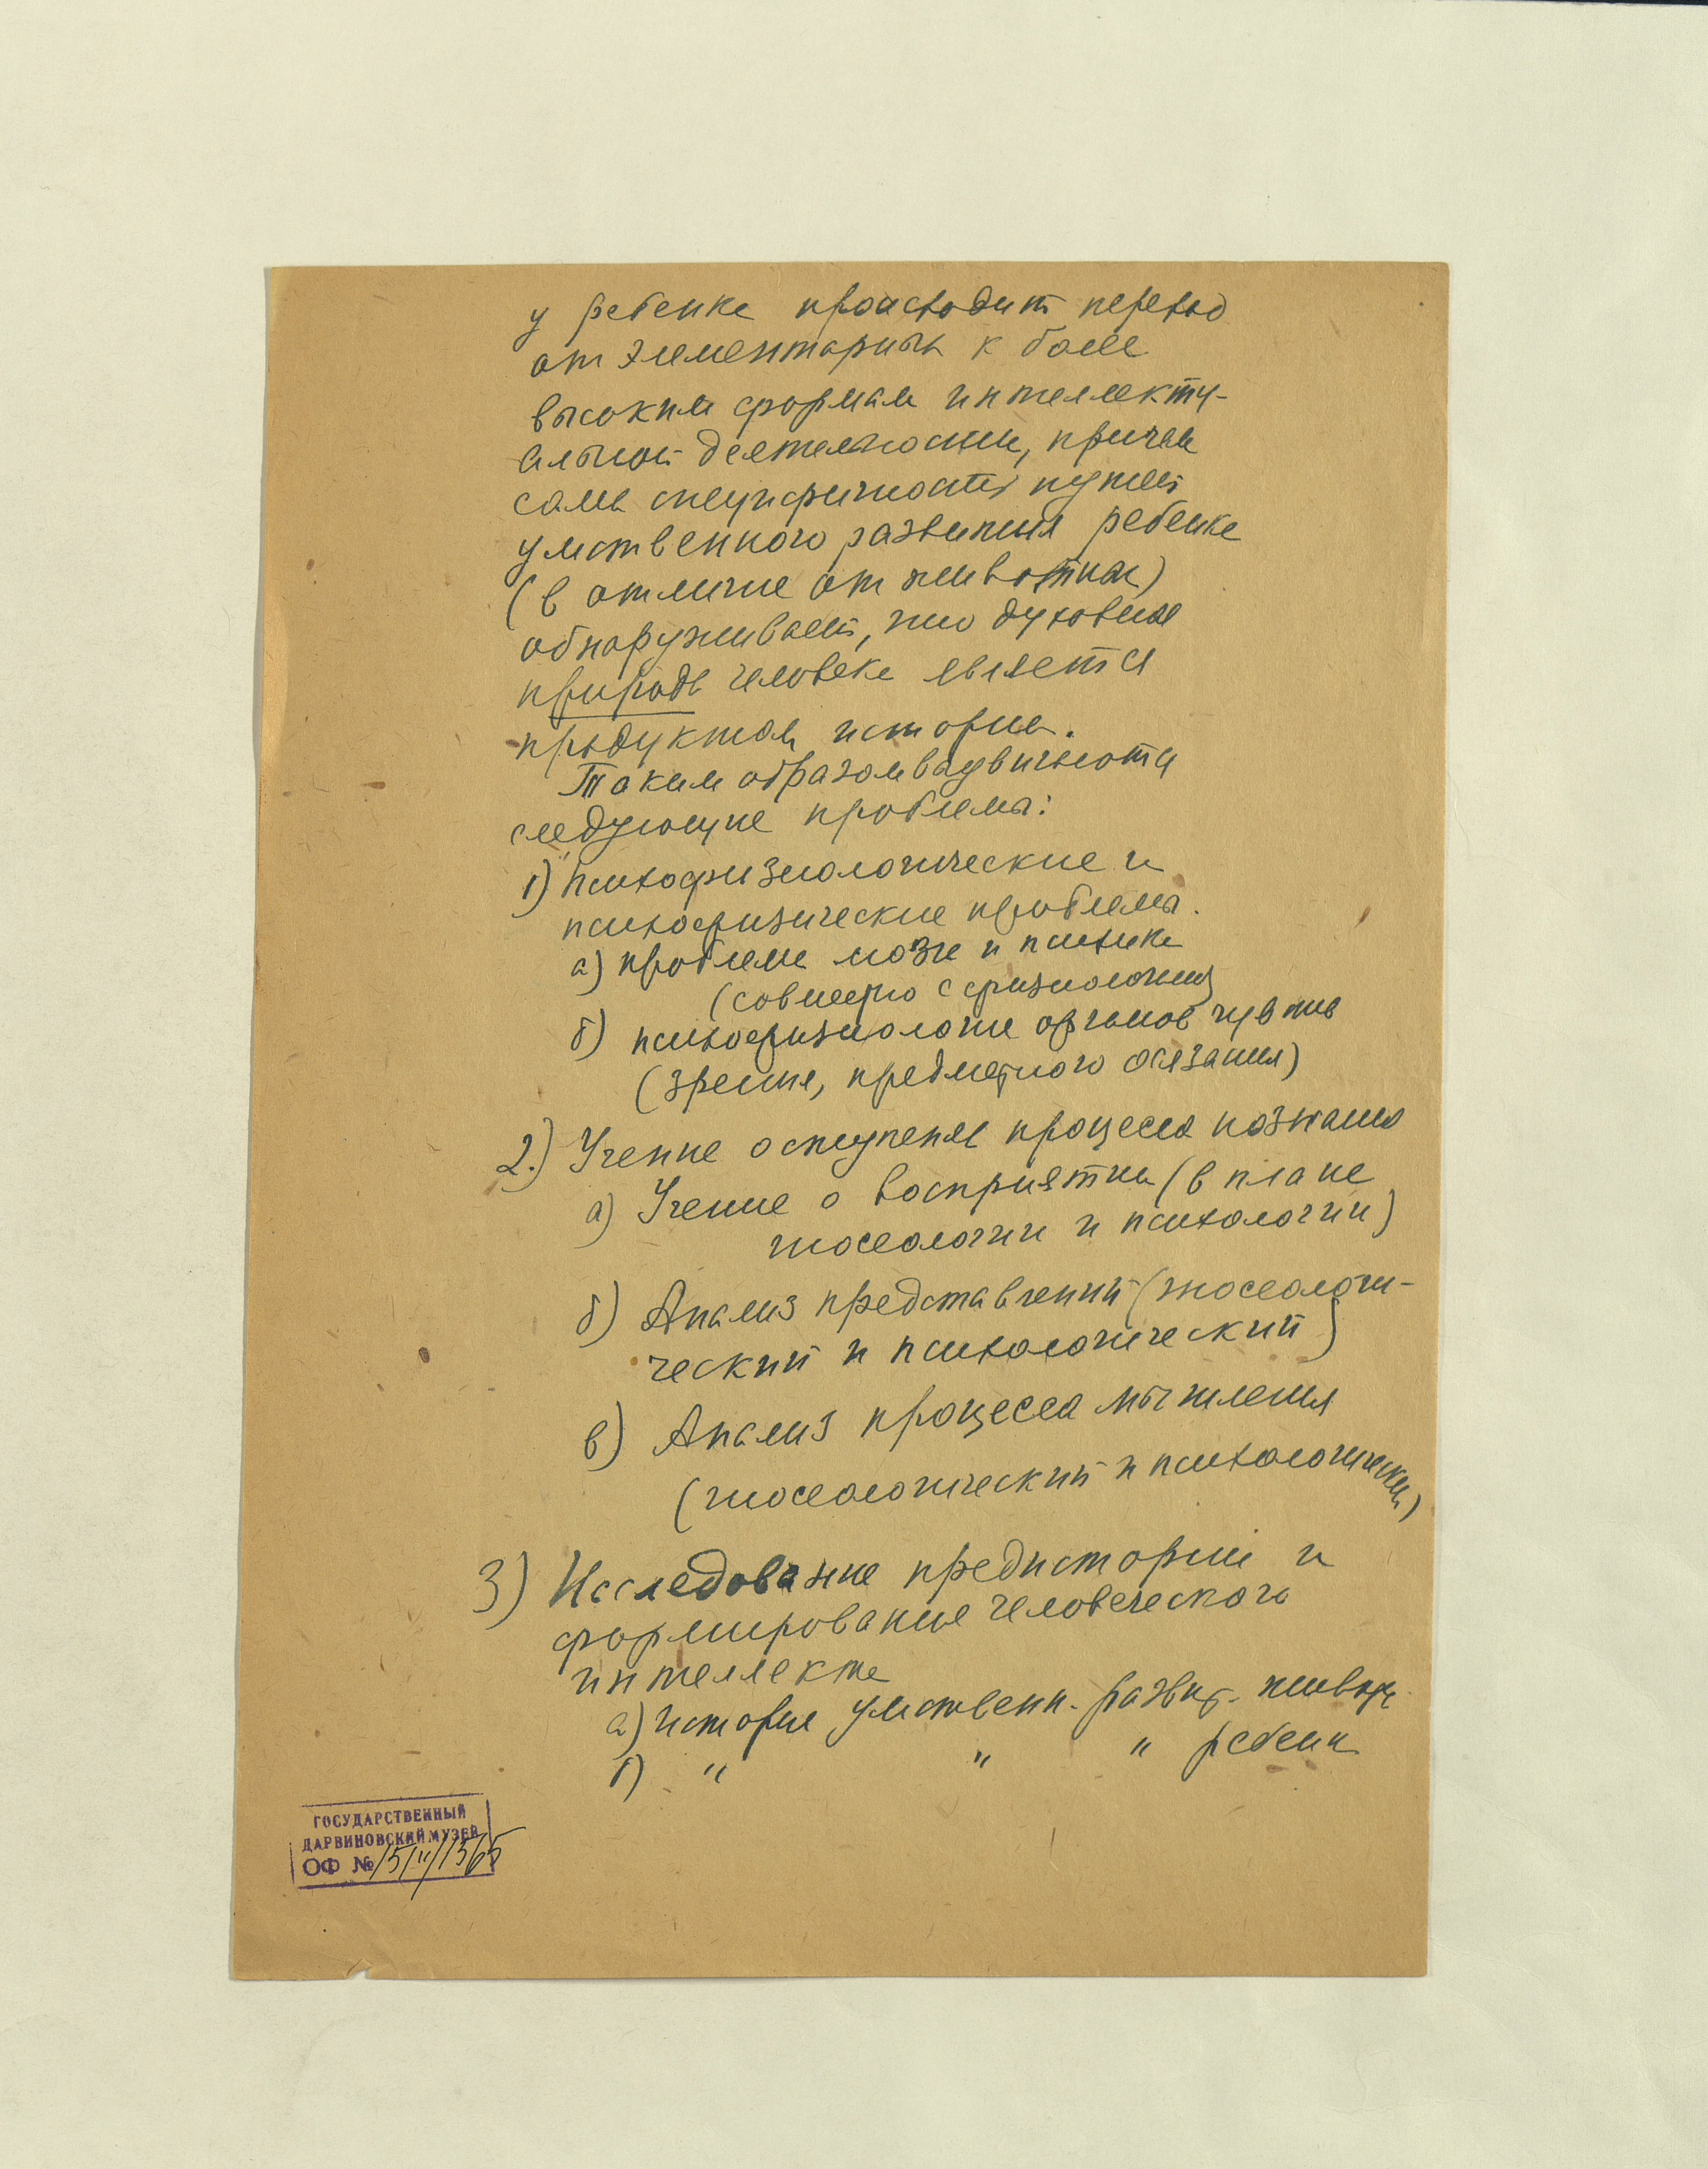 у ребенка происходит переход
от элементарных к более
высоким формам интеллекту-
альной деятельности, причем
сама специфичность путей
умственного развития ребенка
(в отличие от животных)
обнаруживает, что духовная
природа человека является
продуктом истории.
Таким образом выдвигаются
следующие проблемы:
1) Психофизиологические и
психофизические проблемы.
а) проблема мозга и психики
(совместно с физиологией)
б) психофизиология органов чувств
(зрения, предметного осязания)
2.) Учение о ступенях процесса познания
а) Учение о восприятии (в плане
гносеологии и психологии)
б) Анализ представлений (гносеологи-
ческий и психологический)
в) Анализ процесса мышления
(гносеологический и психологический)
3) Исследование предистории и
формирования человеческого
интеллекта
а) история умственн. развит. животн.
б) " " " ребенк
ГОСУДАРСТВЕННЫЙ
ДАРВИНОВСКИЙ МУЗЕЙ
ОФ №